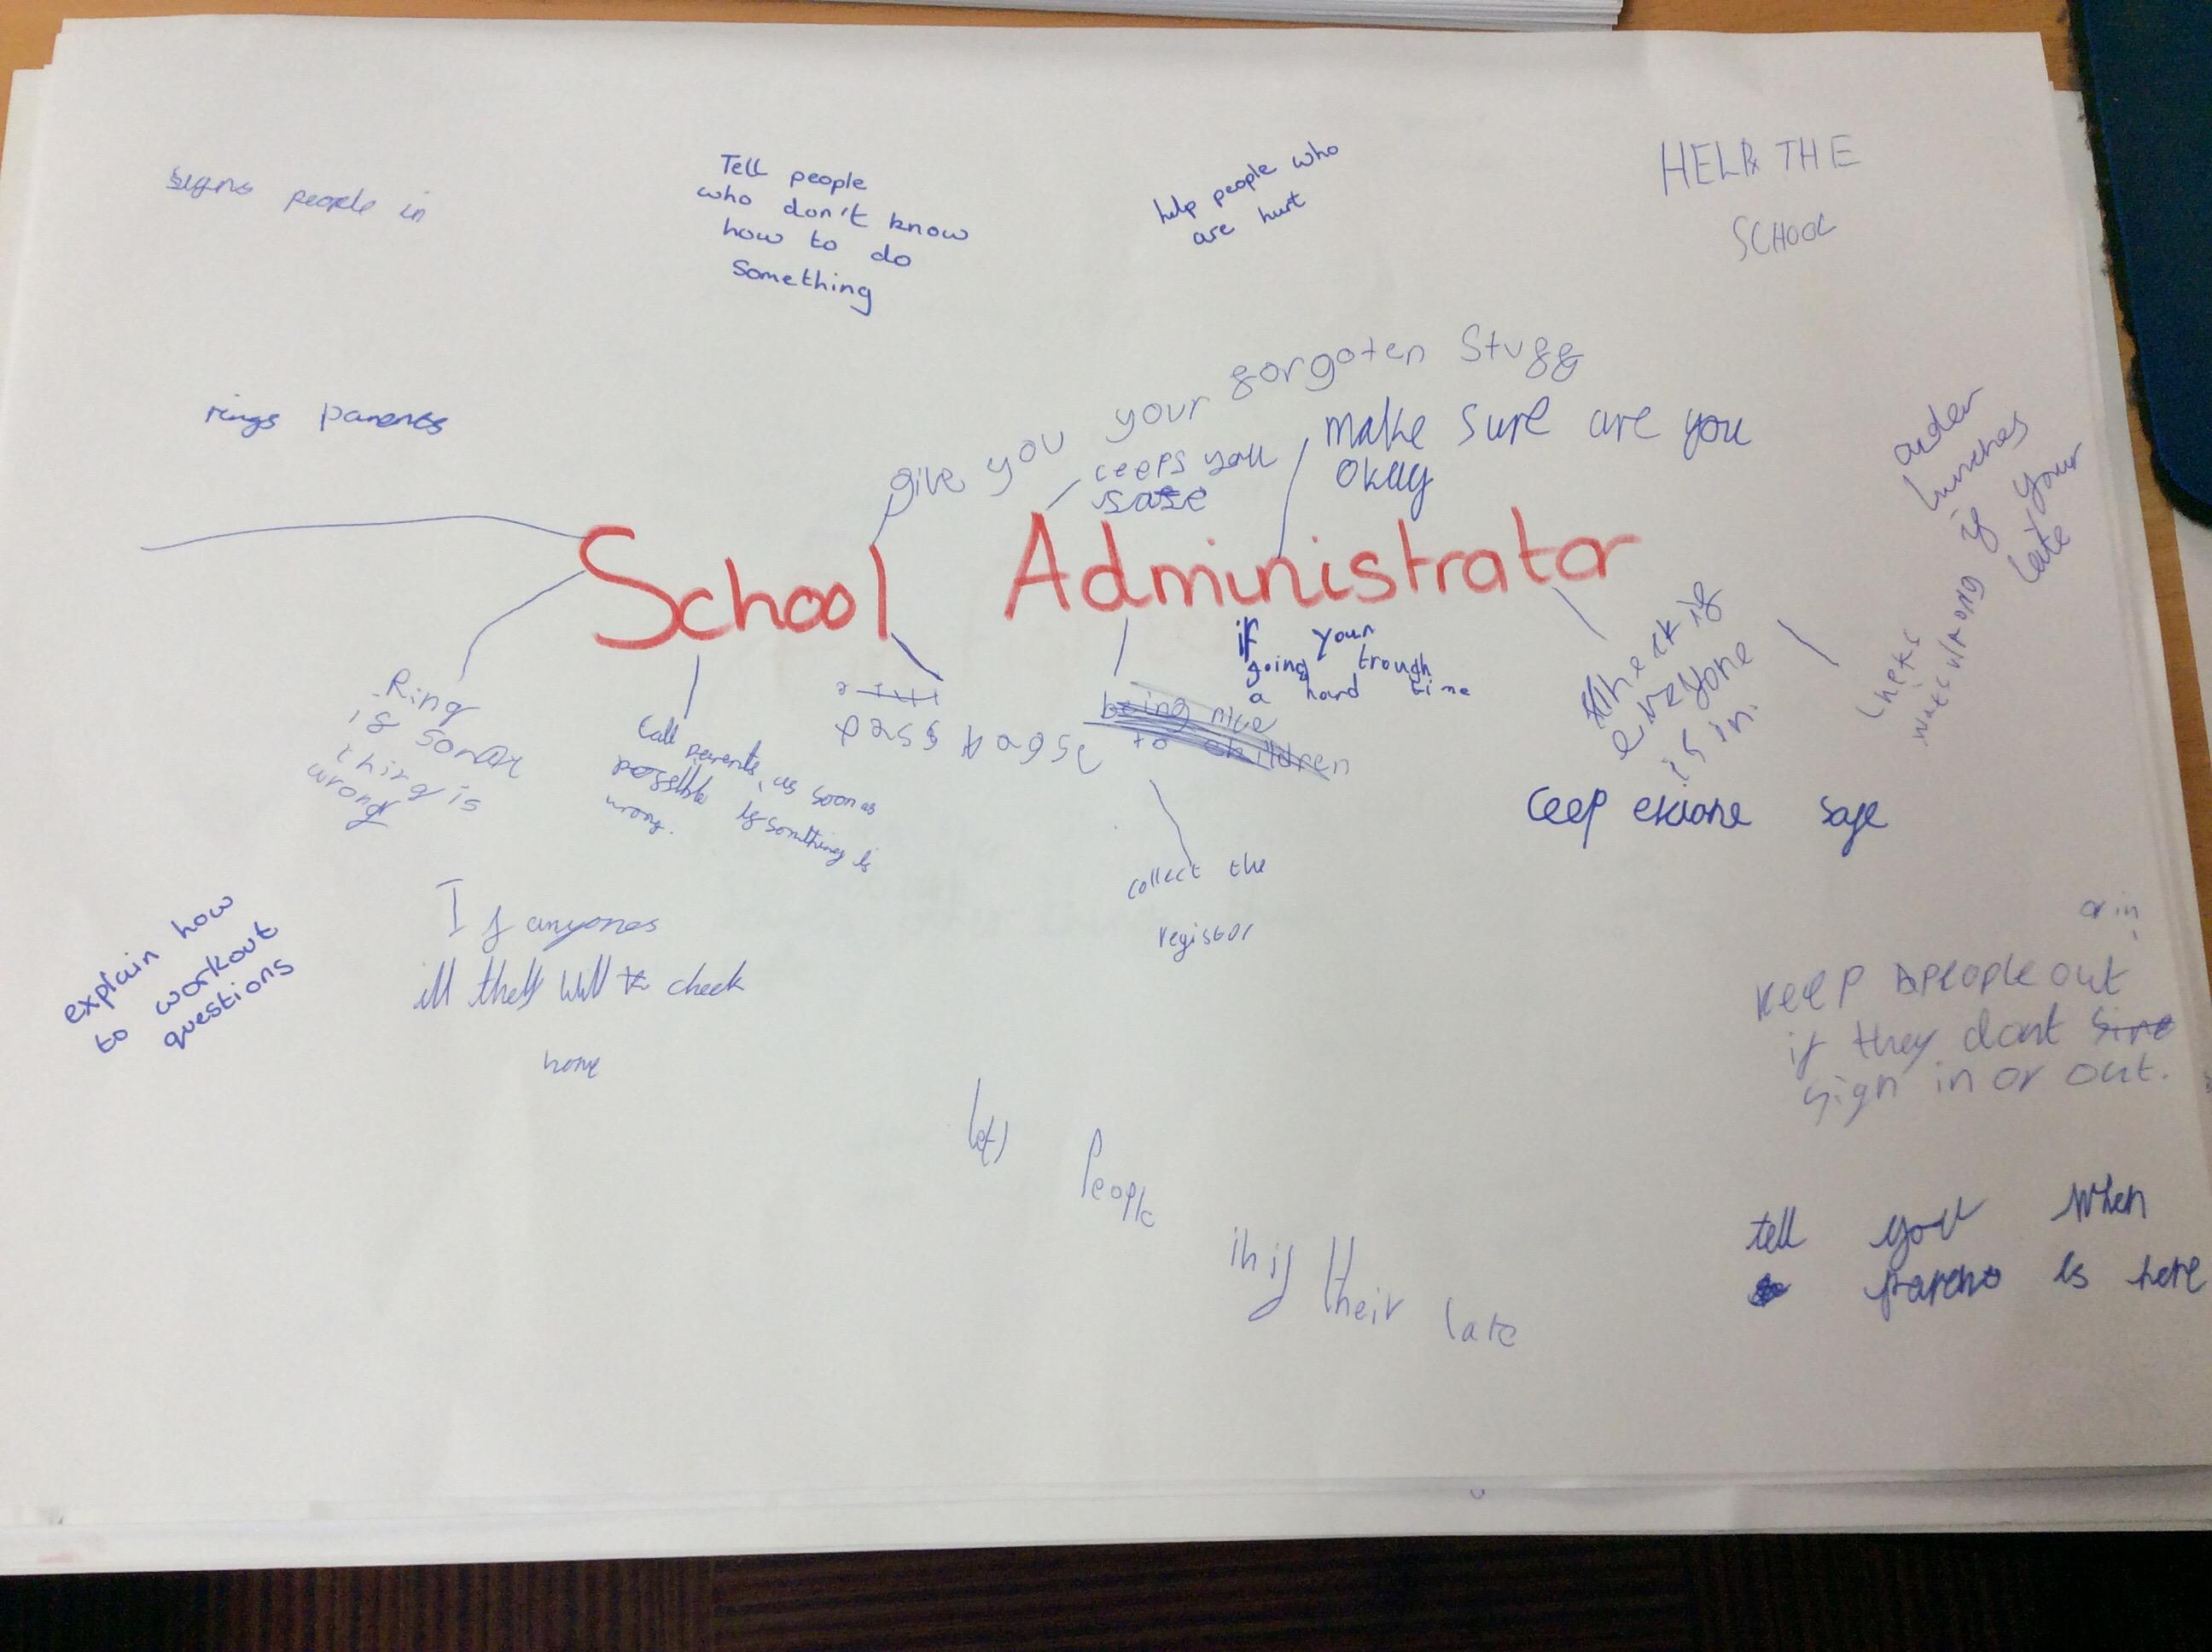 signs people in
Tell people
who don't know
how to do
something
help people who
are hurt
HELP THE
SCHOOL
rings parents
give you your gorgoten Stugg
ceeps you
sase
make sure are you
okay
order
lunches
if your
late
School Administrator
Ring
is
thing is
wrong
Call parents, as soon as
possible if something is
wrong.
if your
going trough
a hard time
being nice
to children
check if
everyone
is in.
cheks
wats wrong
ceep safe
collect the
registor
explain how
to workout
questions
If anyones
ill will check
home
or in
Keep people out
if they dont
sign in or out.
let)
People
in if their late
tell you when
parent is here